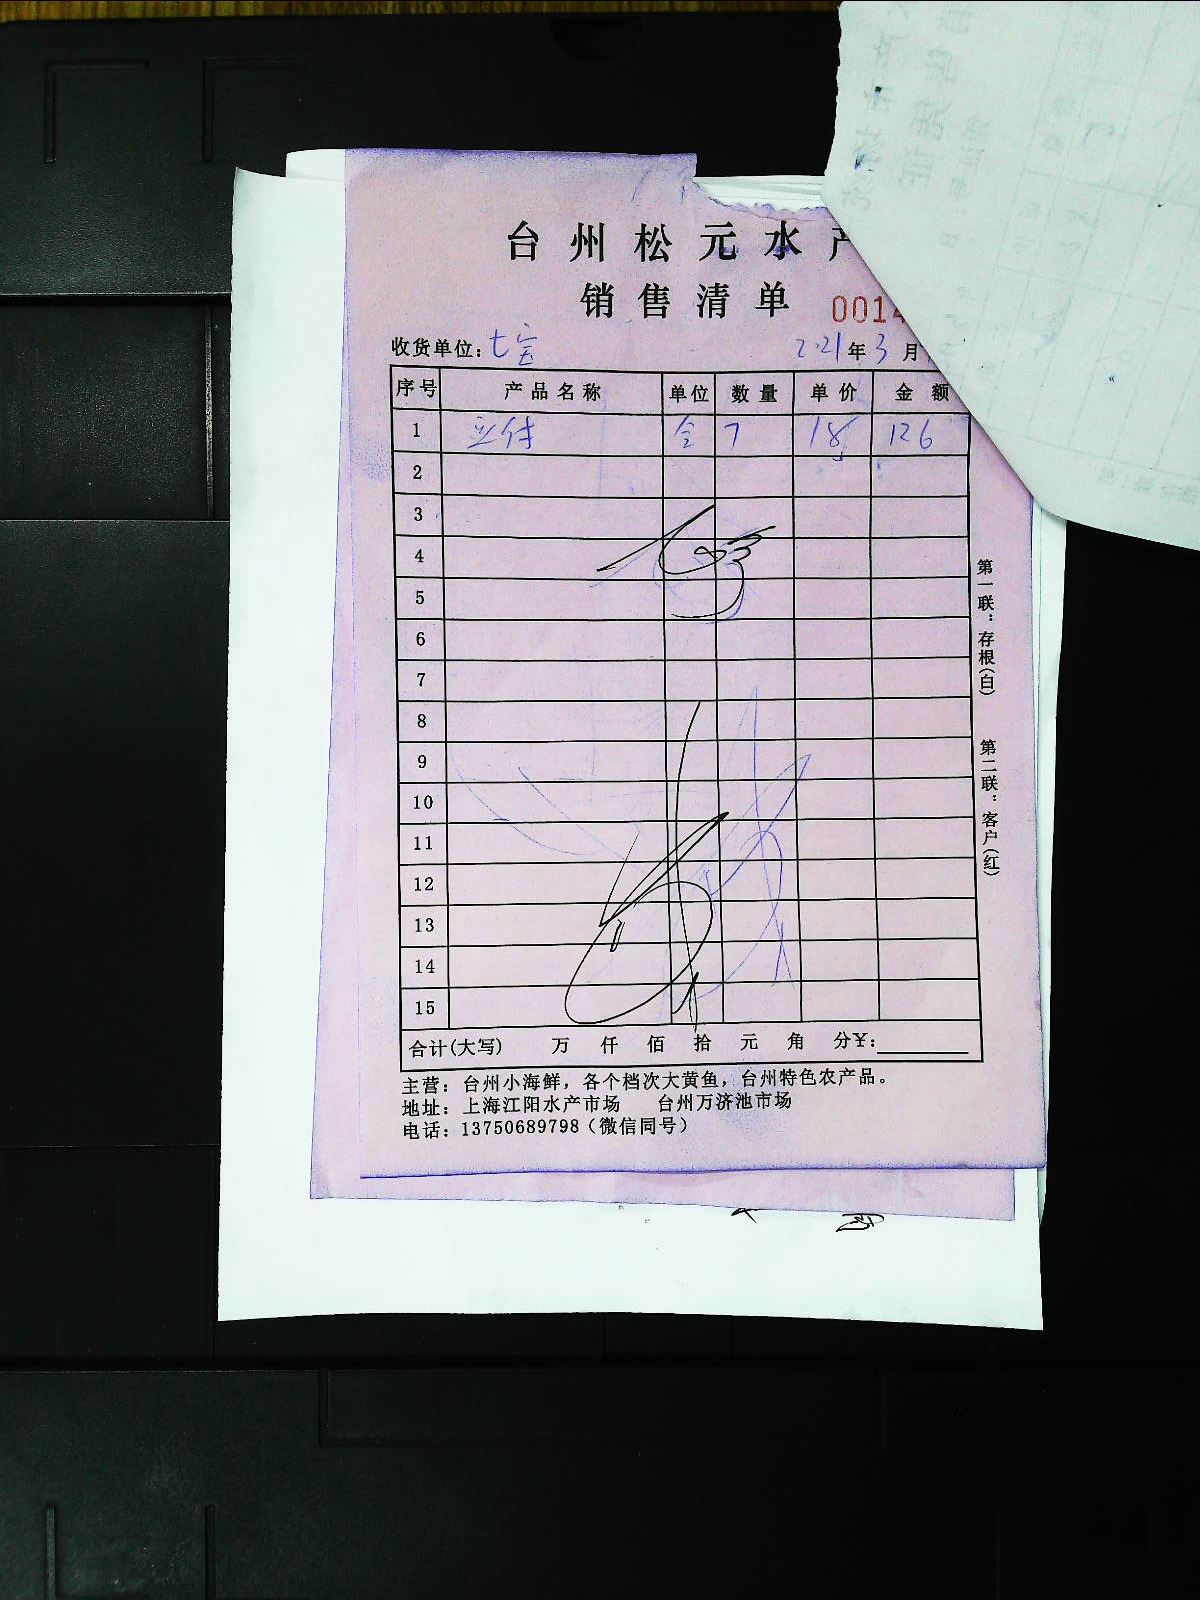 台州松元水产
销售清单 0014
收货单位：七宝 2021年3月
序号 产品名称 单位 数量 单价 金额
1 7 18 126
2
3
4
5
6
7
8
9
10
11
12
13
14
15
合计(大写) 万 仟 佰 拾 元 角 分¥：
主营：台州小海鲜，各个档次大黄鱼，台州特色农产品。
地址：上海江阳水产市场 台州万济池市场
电话：13750689798（微信同号）
第一联：存根(白)
第二联：客户(红)